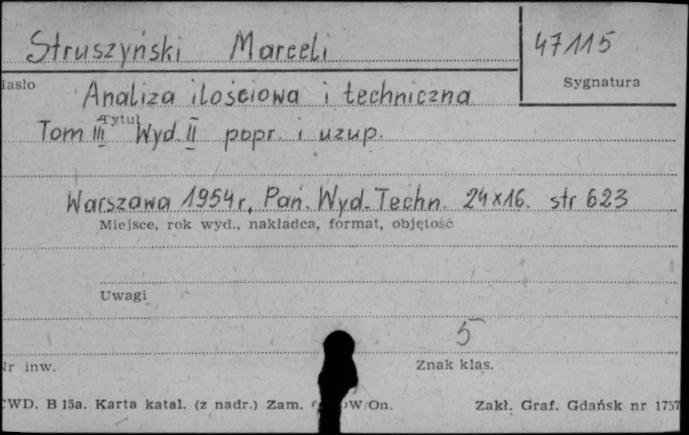 Struszyński Marceli
47115
Hasło
Sygnatura
Analiza ilościowa i techniczna
Tytuł
Tom III Wyd. II popr. i uzup.
Warszawa 1954r. Pań. Wyd. Techn. 24x16. str 623
Miejsce, rok wyd., nakładca, format, objętość
Uwagi
5
Nr inw.
Znak klas.
CWD. B 15a. Karta katal. (z nadr.) Zam. W/On.
Zakł. Graf. Gdańsk nr 1757